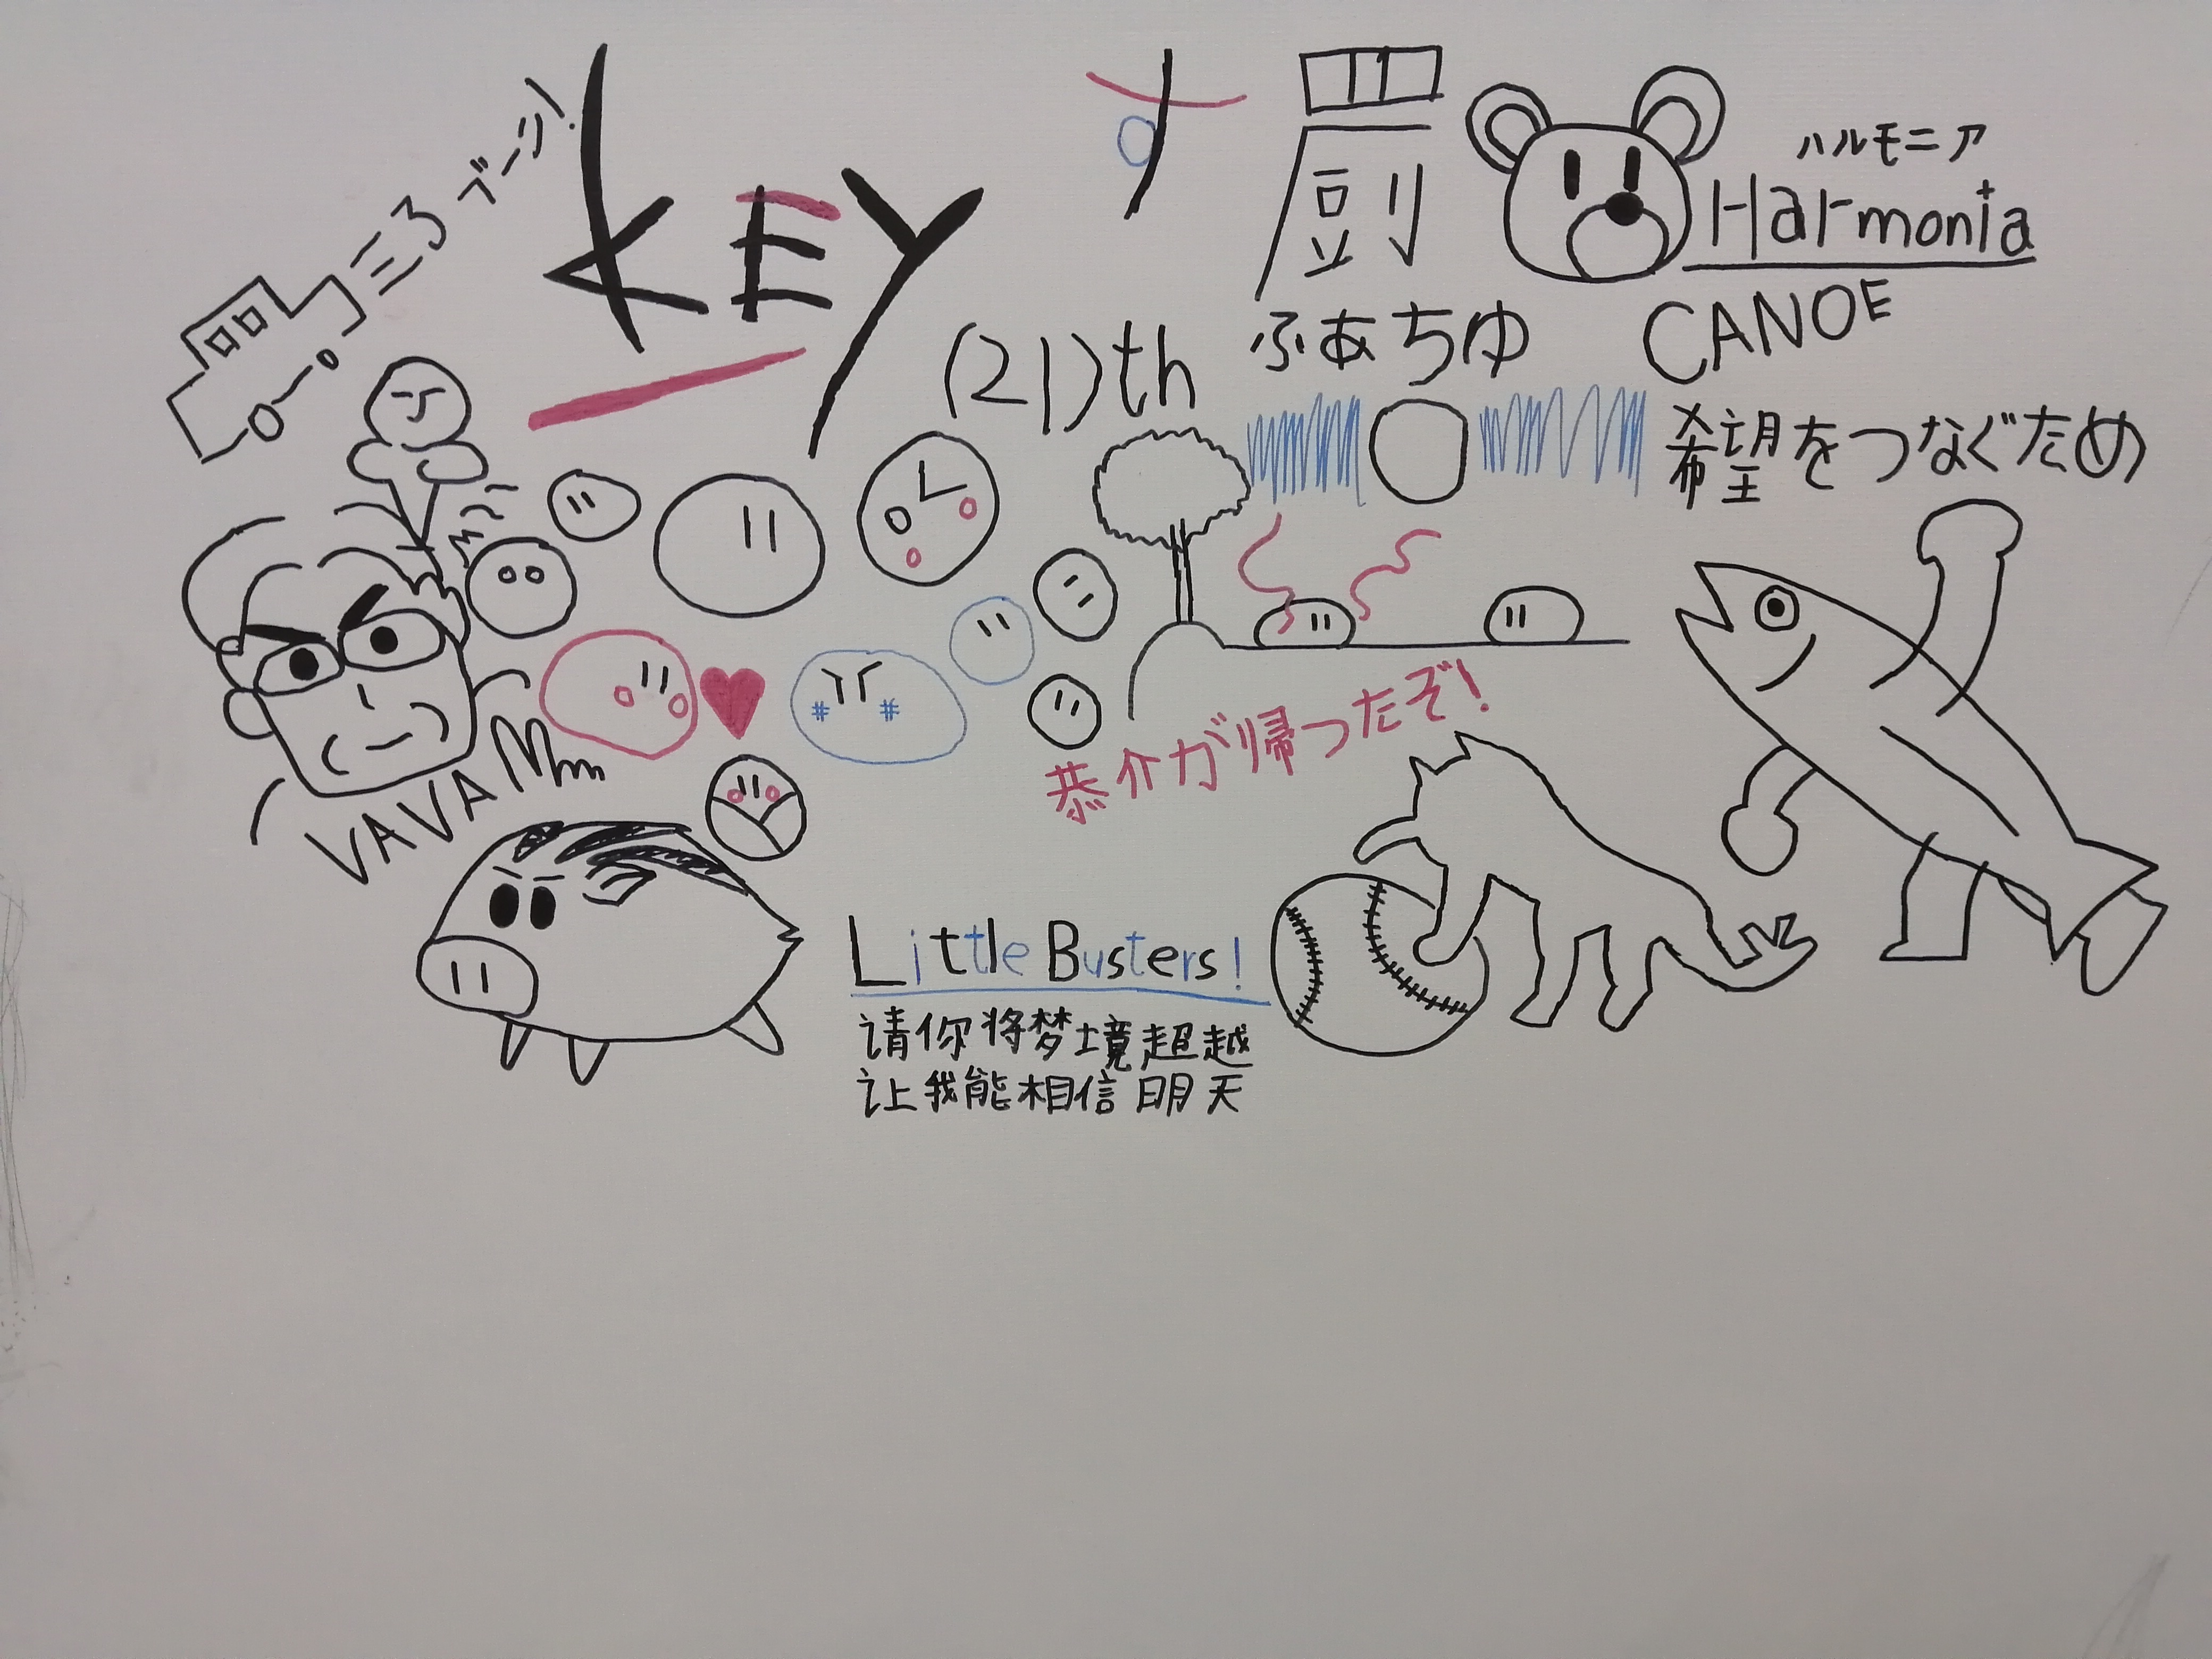 ブーン!
KEY
(21)th
す
ふあちゆ
ハルモニア
Harmonia
CANOE
希望をつなぐため
恭介が帰ったぞ!
VAVA
Little Busters!
请你将梦境超越
让我能相信明天